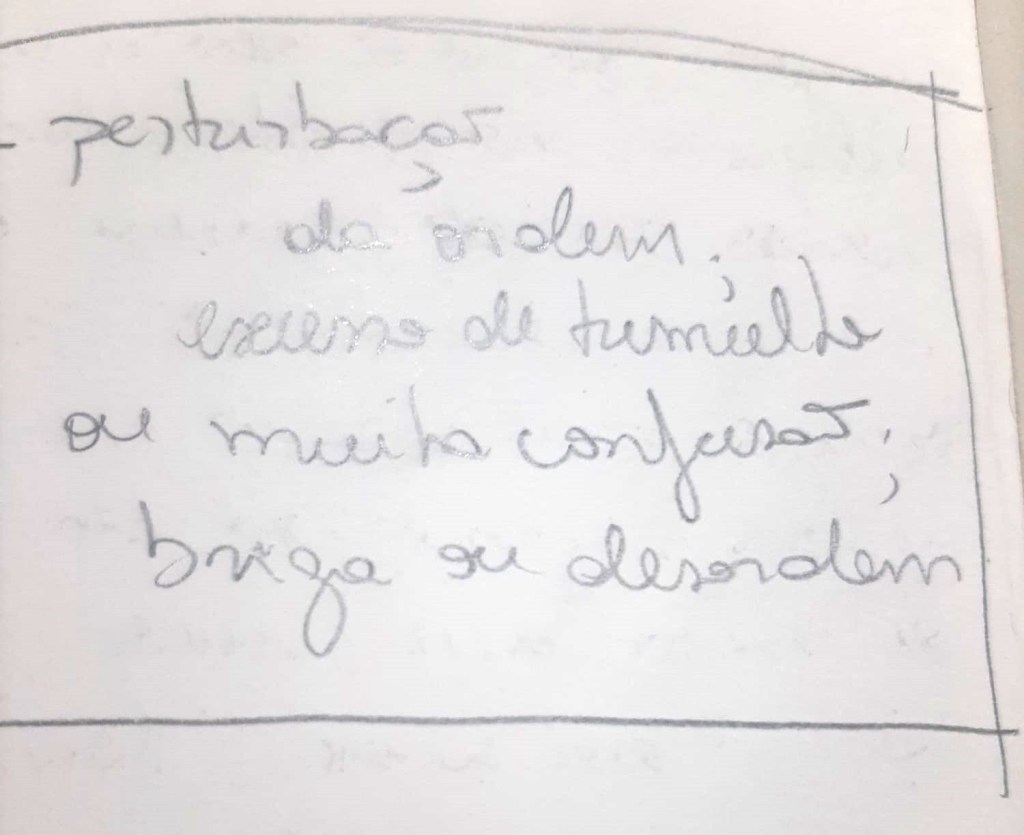 - perturbação
da ordem;
excesso de tumulto
ou muita confusão;
briga ou desordem